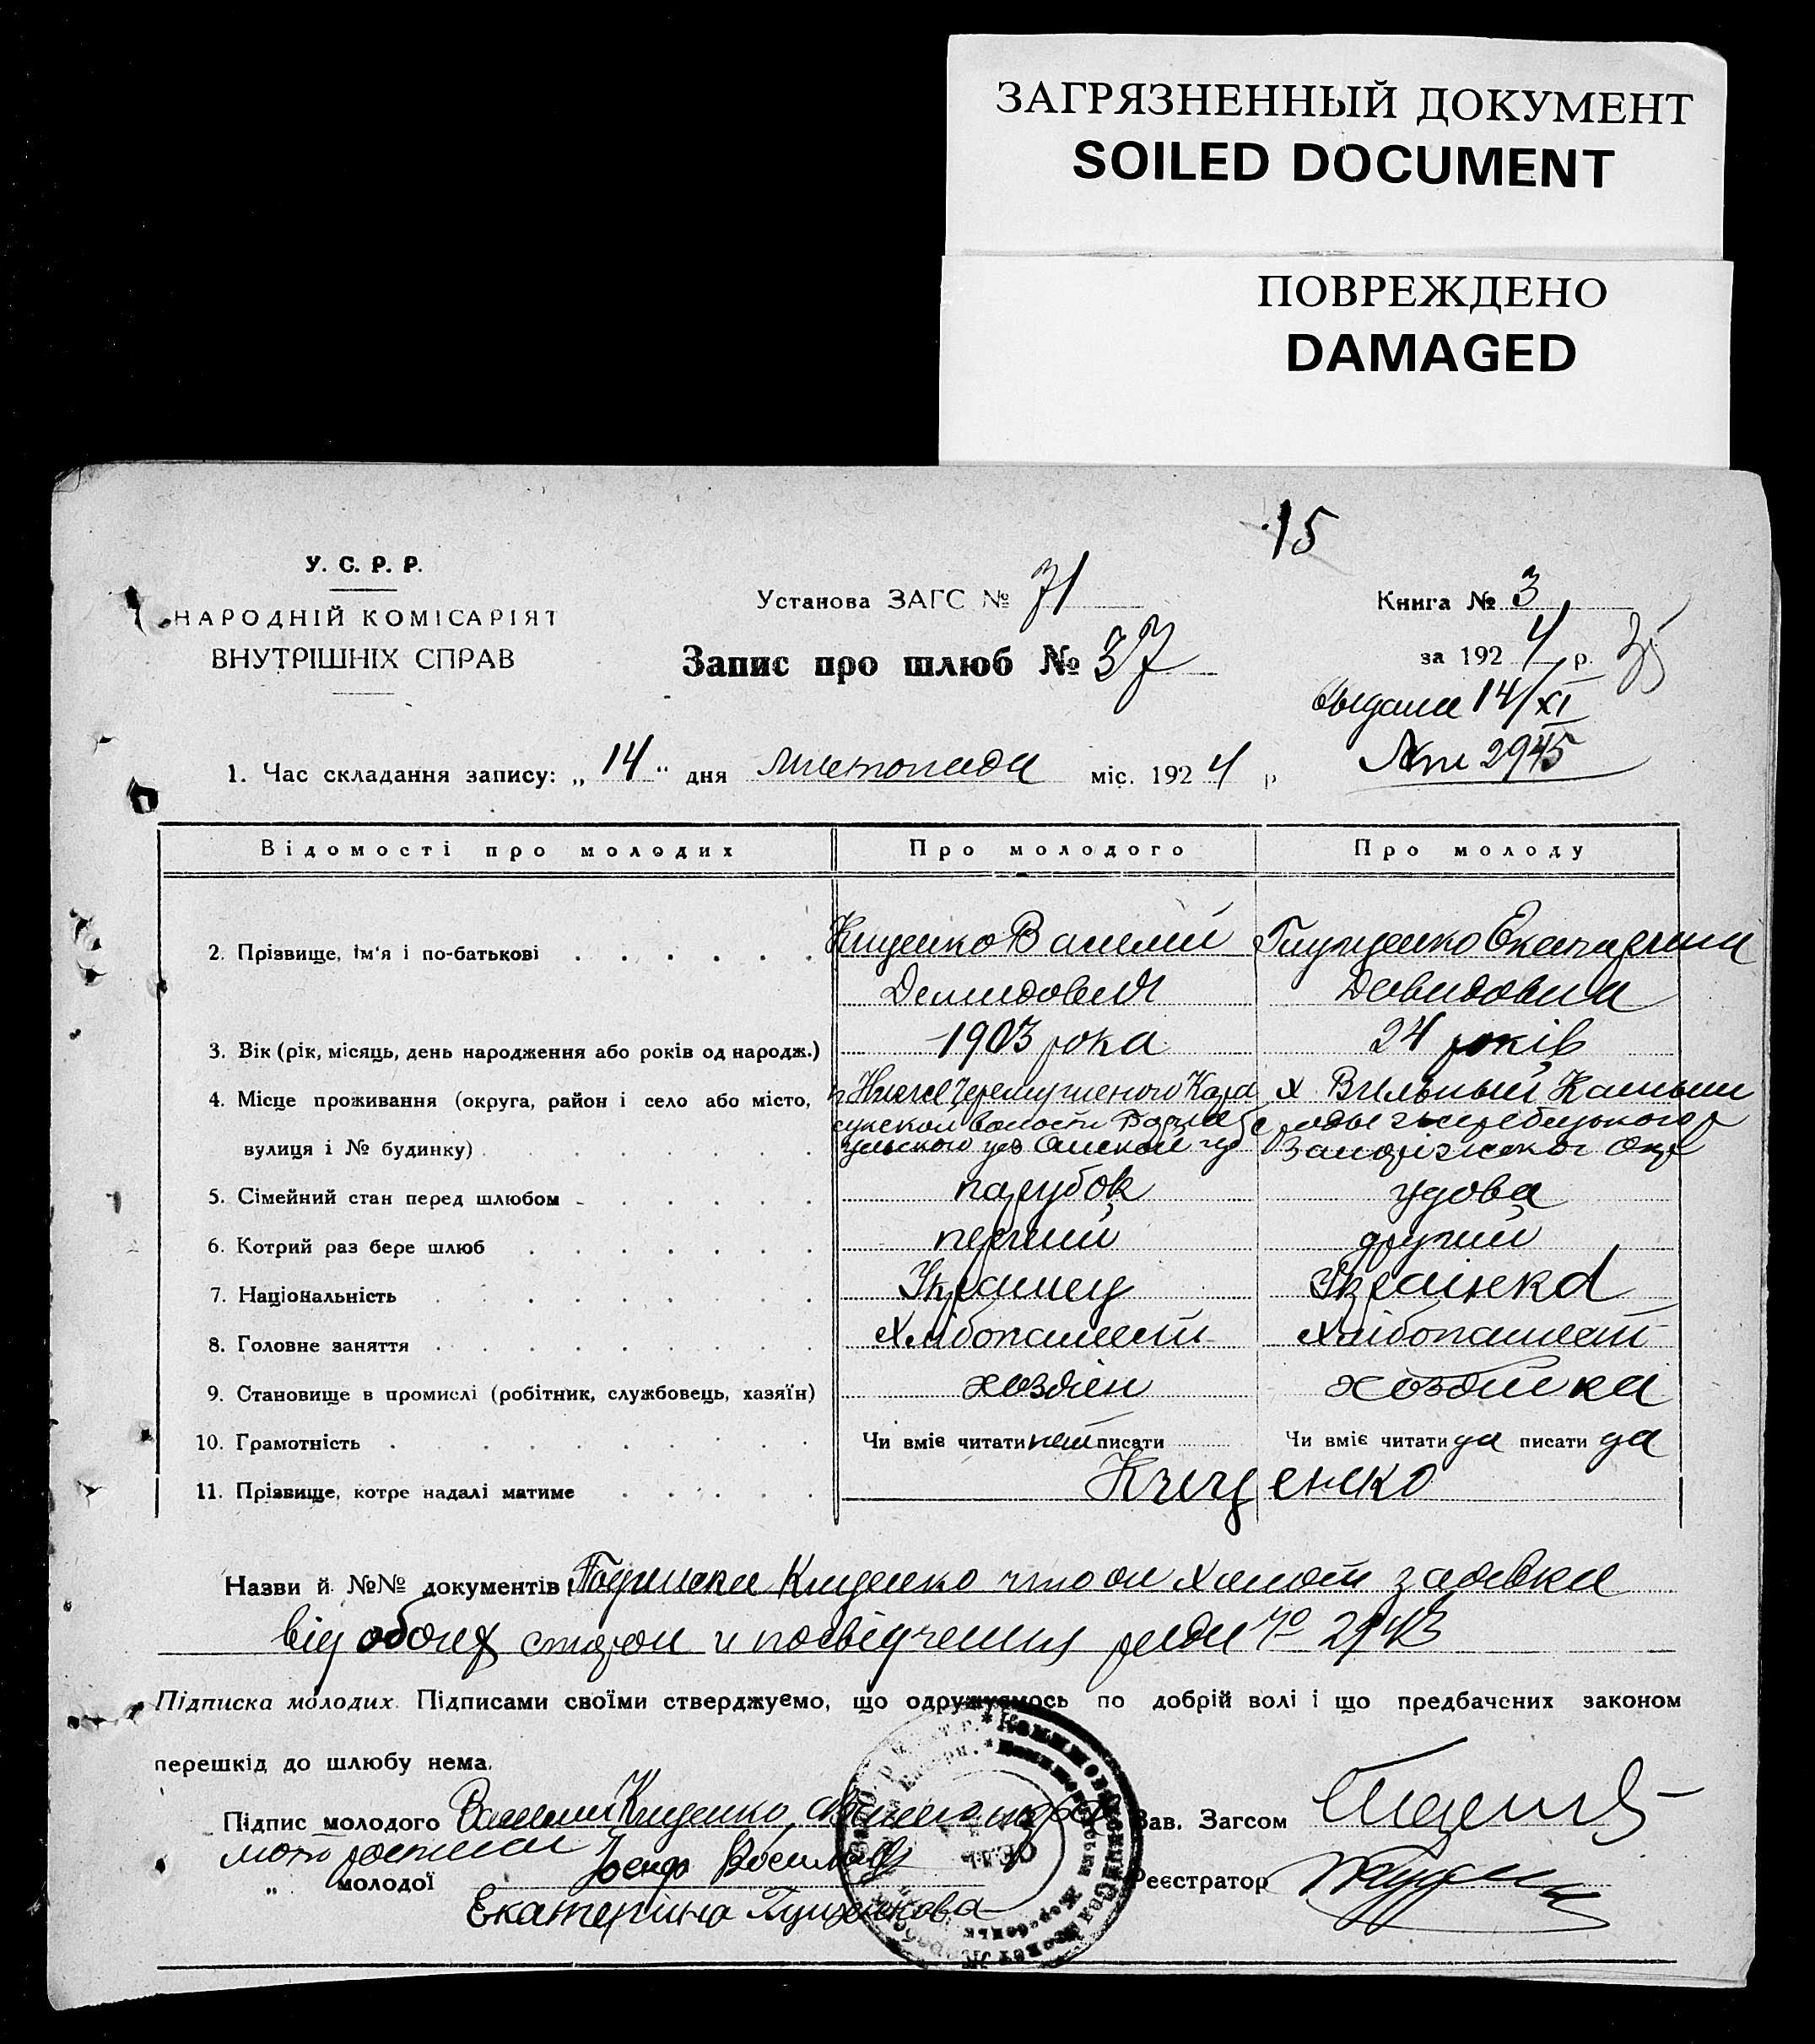 ЗАГРЯЗНЕННЫЙ ДОКУМЕНТ
SOILED DOCUMENT
ПОВРЕЖДЕНО
DAMAGED
15
У. С. Р. Р.
НАРОДНІЙ КОМІСАРІЯТ
ВНУТРІШНІХ СПРАВ
Установа ЗАГС № 71
Запис про шлюб № 37
Книга № 3
за 1924 р.
35
выдана 14/XI
№ 2945
1. Час складання запису: „14“ дня листопада міс. 1924 р
Відомості про молодих Про молодого Про молоду
2. Прізвище, ім'я і по-батькові Кищенко Василий Глущенко Екатерина
Демидович Давидовна
3. Вік (рік, місяць, день народження або років од народж.) 1903 рока 24 років
4. Місце проживання (округа, район і село або місто, х Вильный Камыш
вулиця і № будинку) волости Омской Запорізької Окр
5. Сімейний стан перед шлюбом парубок удова
6. Котрий раз бере шлюб перший другий
7. Національність Украинец Українка
8. Головне заняття Хлібопашест Хлібопашест
9. Становище в промислі (робітник, службовець, хазяїн) хозяін хозяйка
10. Грамотність Чи вміє читати нет писати Чи вміє читати да писати да
11. Прізвище, котре надалі матиме Кищенко
Назви й №№ документів Подписка Кищенко что он холост заявка
від обоих сторон и посвідчення ради № 2943
Підписка молодих. Підписами своїми стверджуємо, що одружуємось по добрій волі і що предбачених законом
перешкід до шлюбу нема.
Підпис молодого Василий Кищенко, Зав. Загсом
„ молодої Реєстратор
Екатеріна